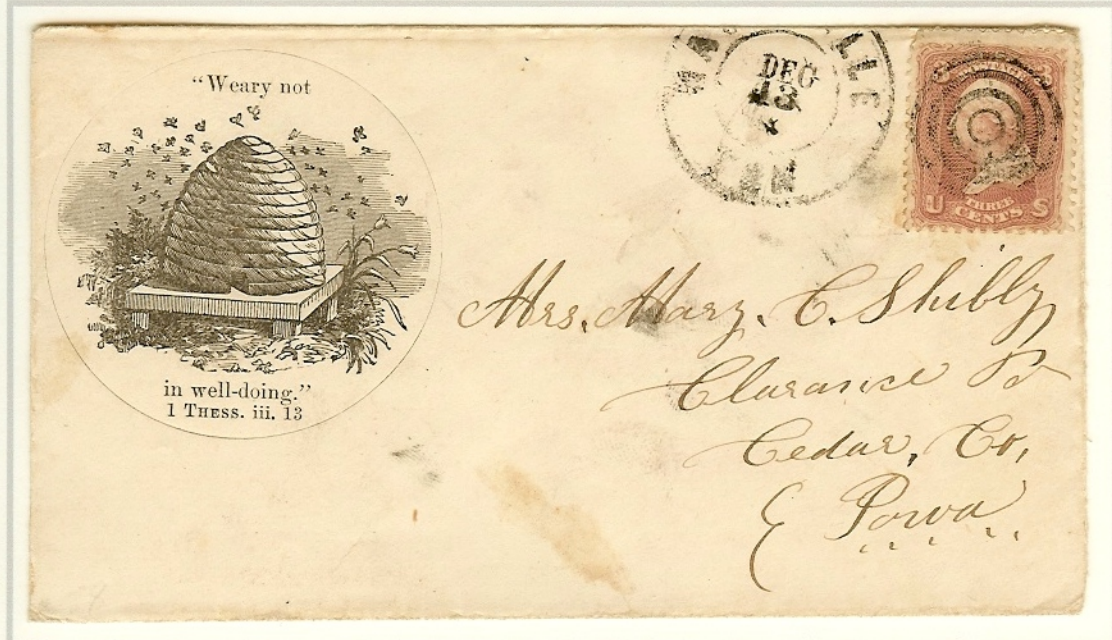 "Weary not
in well-doing."
1 Thess. iii. 13
DEC
13
THREE
U CENTS S
Mrs. Mary. C. Shibly
Clarance Po
Cedar, Co,
Iowa